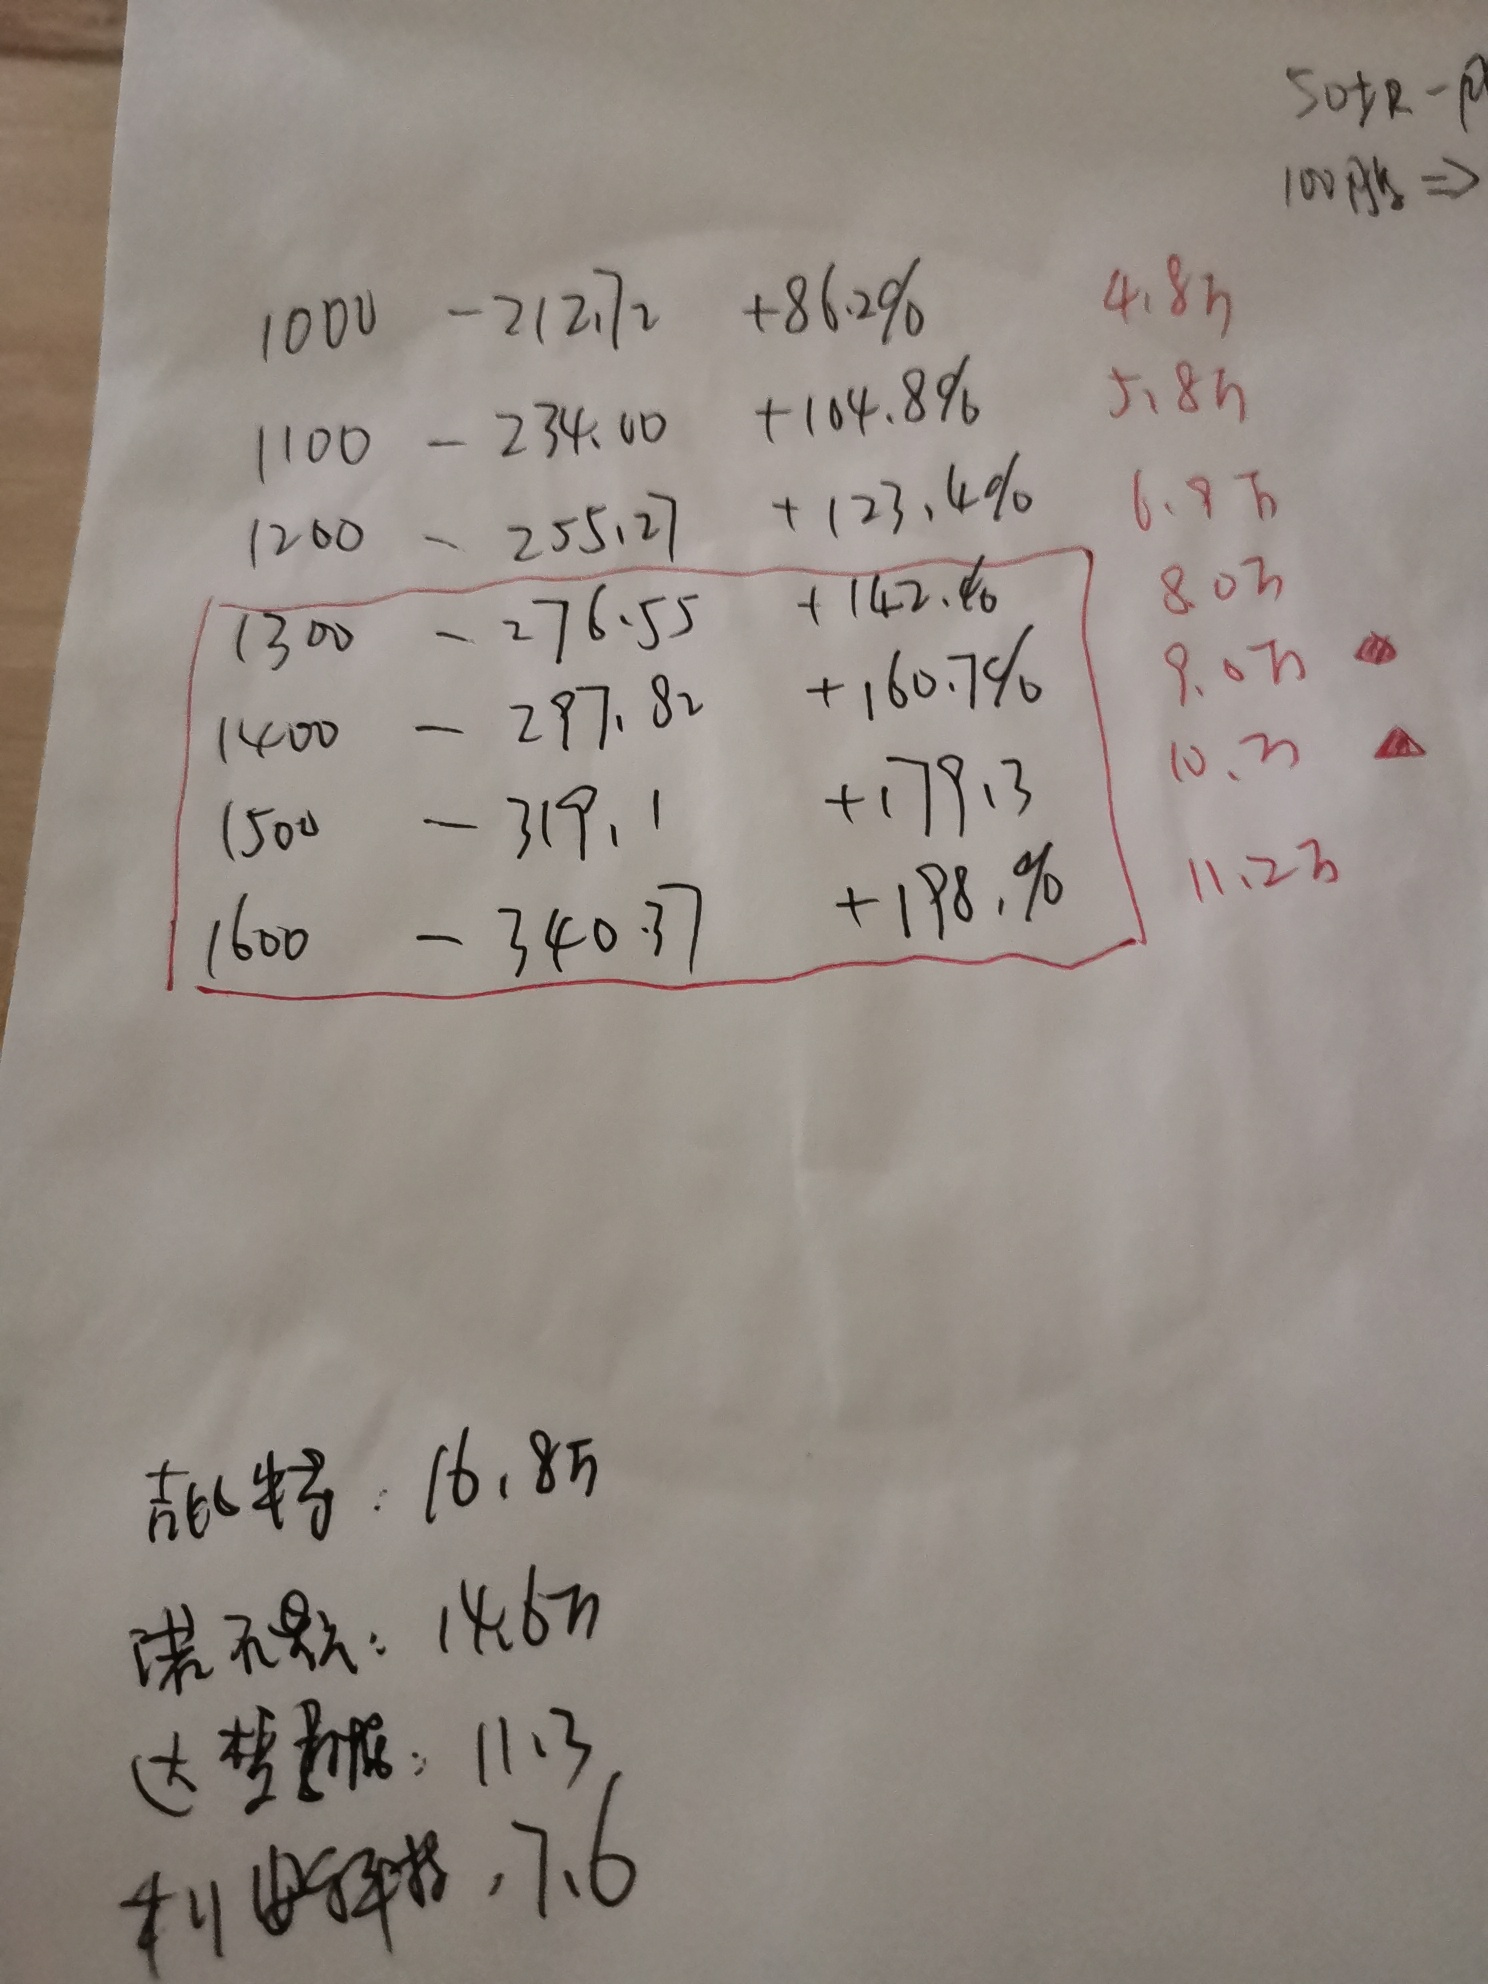 50块-
100股 =>
1000 -212.72 +86.2% 4.8万
1100 - 234.00 +104.8% 5.8万
1200 - 255.27 +123.4% 6.9万
1300 - 276.55 +142.% 8.0万
1400 - 297.82 +160.7% 9.0万
1500 - 319.1 +179.3 10.万
1600 - 340.37 +198.% 11.2万
: 16.8万
诺禾: 14.6万
达梦数据: 11.3
7.6